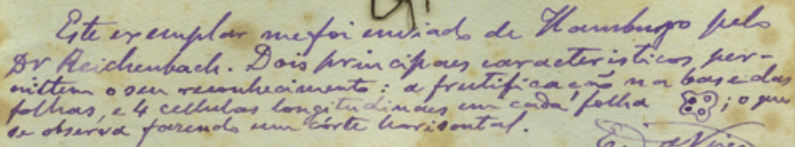 Este exemplar me foi enviado de Hamburgo pelo
Dr Reichenbach. Dois principaes caracteristicos, per-
mittem o seu reconhecimento: a frutificação na base das
folhas, e 4 cellulas longitudinaes em cada folha ; o que
se observa fazendo um córte horisontal.